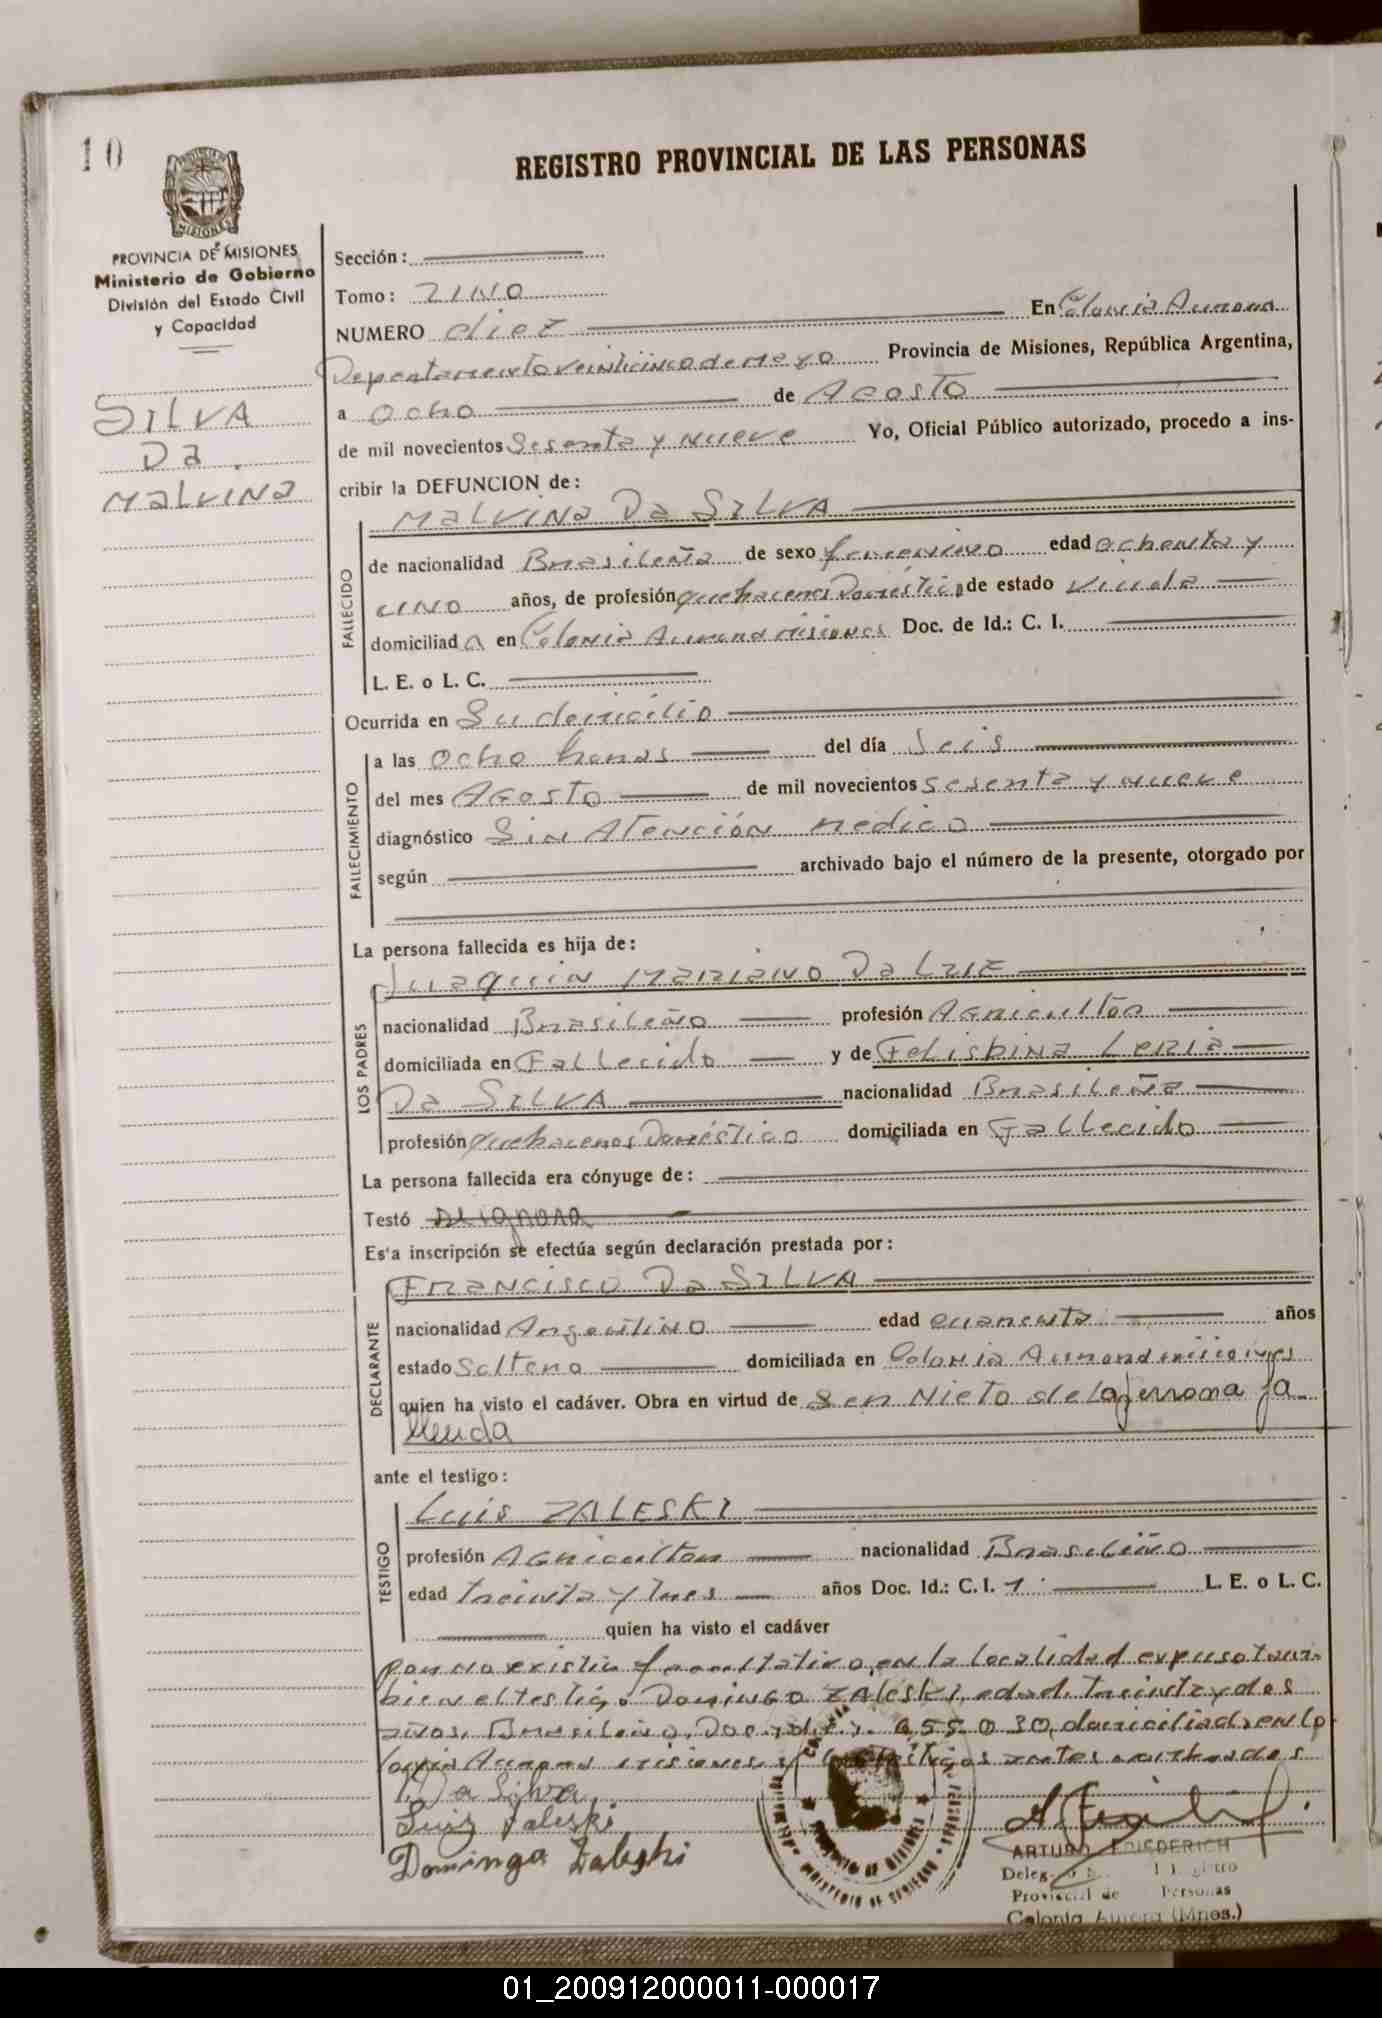 10
REGISTRO PROVINCIAL DE LAS PERSONAS
PROVINCIA DE MISIONES
Ministerio de Gobierno
División del Estado Civil
y Capacidad
SILVA
Da
Malvina
Sección:
Tomo: UNO
NUMERO diez En Colonia Aurora
Departamento veinticinco de mayo Provincia de Misiones, República Argentina,
a Ocho de Agosto
de mil novecientos Sesenta y nueve Yo, Oficial Público autorizado, procedo a ins-
cribir la DEFUNCION de:
Malvina Da Silva
FALLECIDO
de nacionalidad Brasileña de sexo femenino edad ochenta y
uno años, de profesión quehaceres Doméstico de estado viuda
domiciliad a en Colonia Aurora Misiones Doc. de Id.: C. I.
L. E. o L. C.
Ocurrida en Su domicilio
FALLECIMIENTO
a las Ocho horas del día Seis
del mes Agosto de mil novecientos sesenta y nueve
diagnóstico Sin Atención medico
según archivado bajo el número de la presente, otorgado por
La persona fallecida es hija de:
LOS PADRES
Juaquin Mariano Da Luz
nacionalidad Brasileño profesión Agricultor
domiciliada en Fallecido y de Felisbina Leria
Da Silva nacionalidad Brasileña
profesión quehaceres Doméstico domiciliada en Fallecido
La persona fallecida era cónyuge de:
Testó se ignora
Es'a inscripción se efectúa según declaración prestada por:
DECLARANTE
Francisco Da Silva
nacionalidad Argentino edad cuarenta años
estado Soltero domiciliada en Colonia Aurora misiones
quien ha visto el cadáver. Obra en virtud de Ser Nieto de la persona fa-
llecida
ante el testigo:
TESTIGO
Luis ZALESKI
profesión Agricultor nacionalidad Brasileño
edad treinta y tres años Doc. Id.: C. I. L. E. o L. C.
quien ha visto el cadáver
por no existir facultativo, en la localidad expuso tam-
bien el testigo Domingo Zaleski, edad treinta y dos
años, Brasileño, Doc. 455.030, domiciliado en Co
lonia Aurora misiones testigos antes nombrados
Da Silva
Luiz Zaleski
Domingo Zaleski
ARTURO FRIEDERICH
Provincial de Personas
Colonia Aurora (Mnes.)
01_200912000011-000017